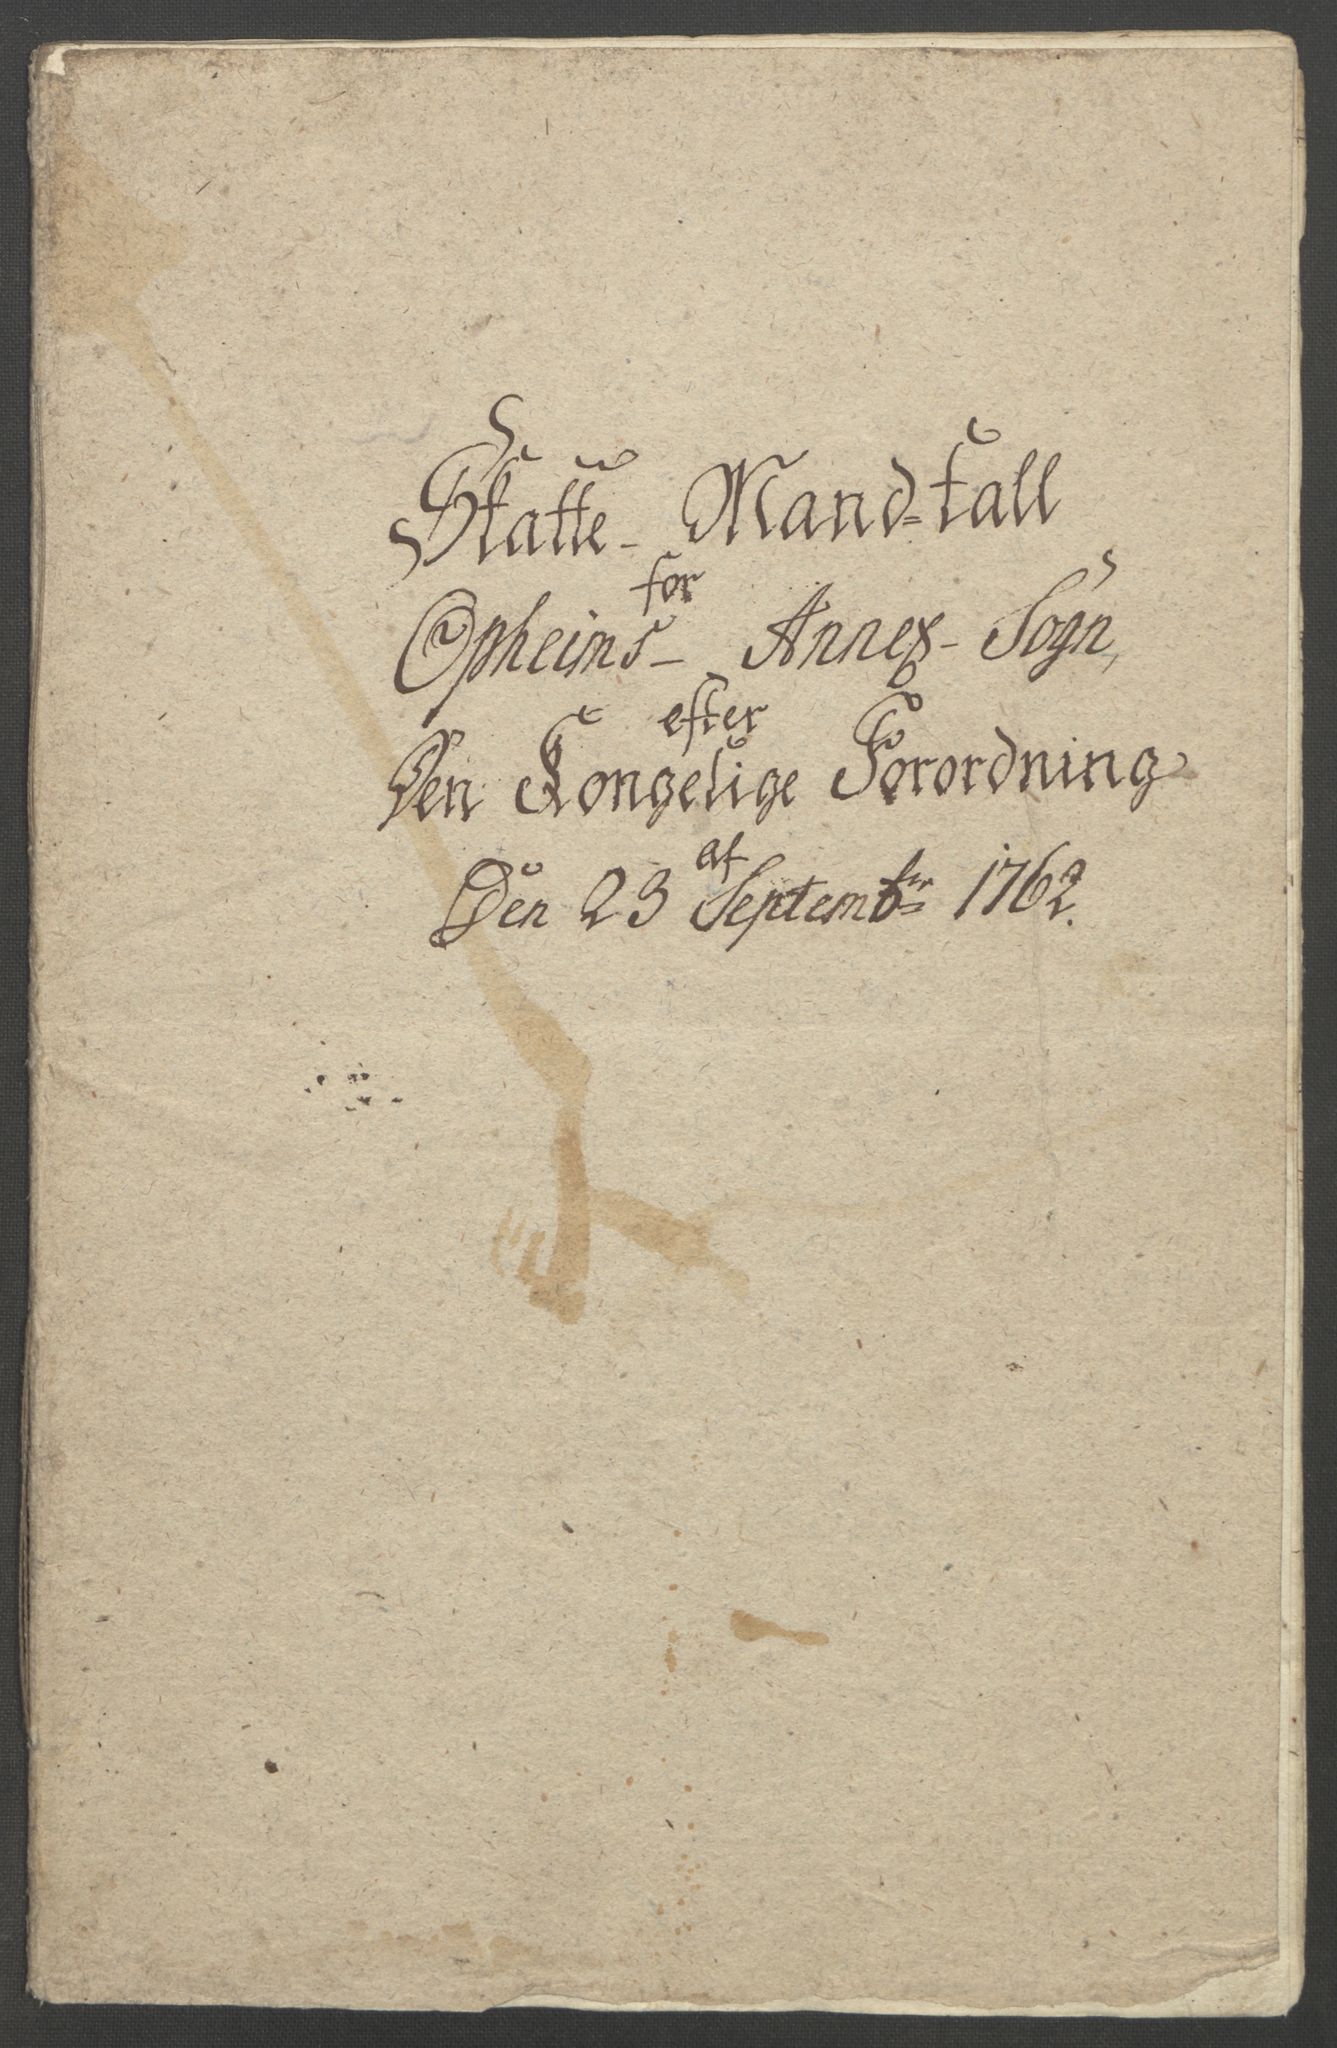 Skatte- Mand=tall
for
Opheims- Annex- Sogn,
efter
Den Kongelige Forordning
af
Den 23 Septembr 1762.